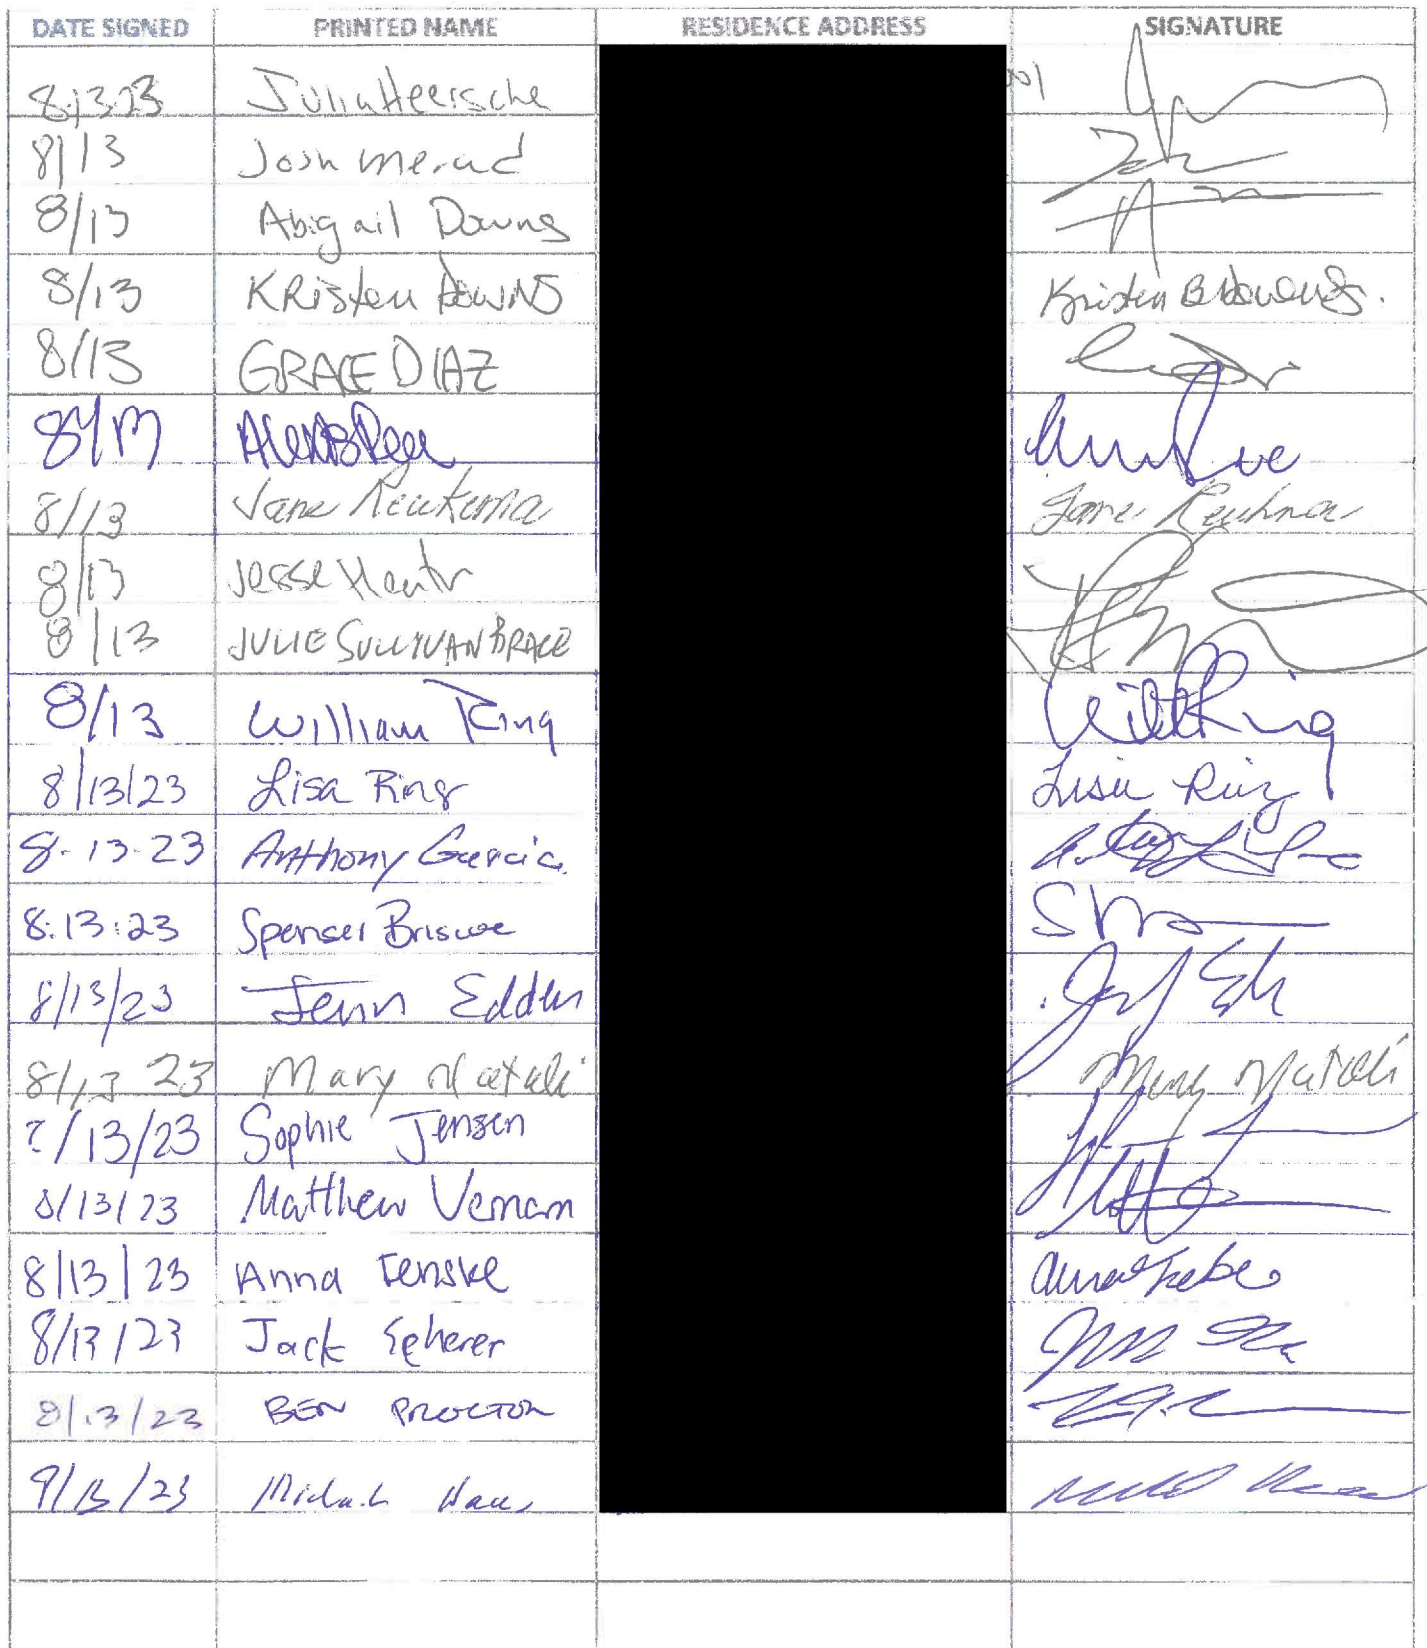 DATE SIGNED PRINTED NAME RESIDENCE ADDRESS SIGNATURE
8.13.23 Julia Heersche
8/13 Josh Merad
8/13 Abigail Downs
8/13 KRisten DOWNS Kristen B Downs.
8/13 GRACE DIAZ
8/13 Alexis Ree
8/13 Jane Reukema Jane Reukema
8/13 Jesse
8/13 JULIE SULLIVAN BRACE
8/13 William Ring Will Ring
8/13/23 Lisa Ring Lisa Ring
8-13-23 Anthony Garcia
8:13:23 Spenser Briscoe
8/13/23 Jenn Edden
8/13 23 Mary Natali Mary Natali
/13/23 Sophie Jensen
8/13/23 Matthew Vernam
8/13/23 Anna Fenske
8/13/23 Jack Scherer
8/13/23 BEN PROCTOR
/23